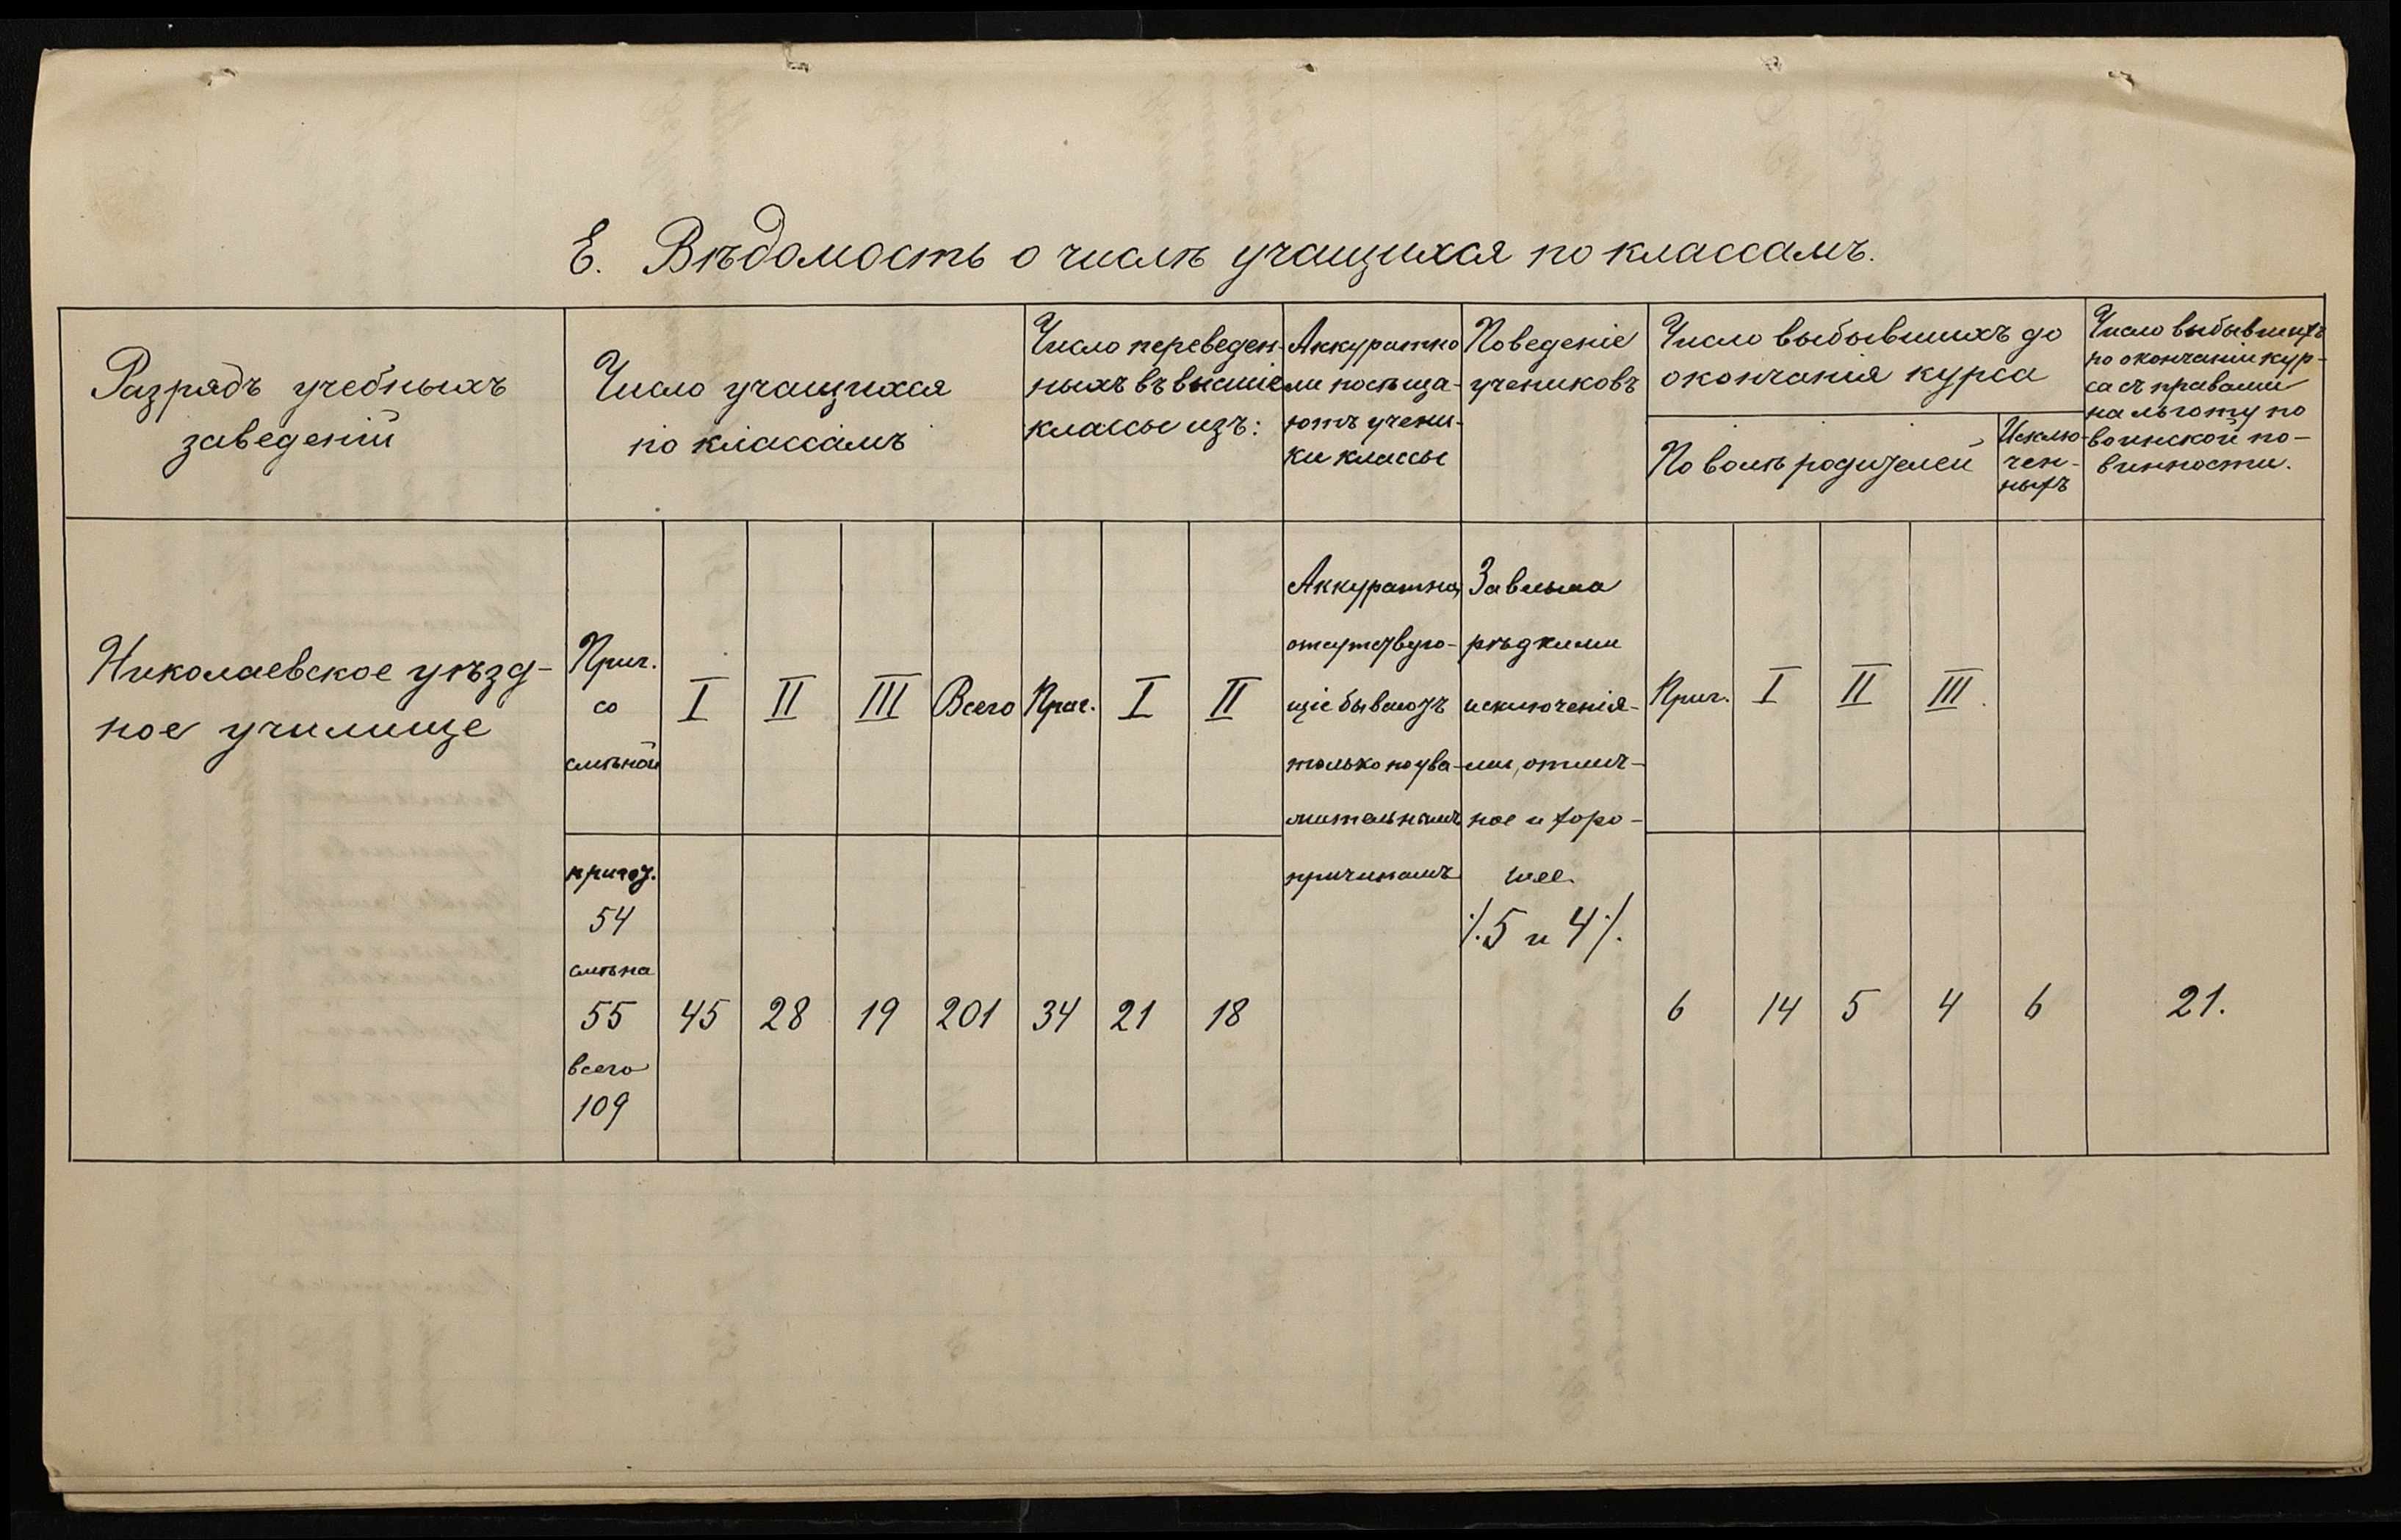 Е. Вѣдомость о числѣ учащихся по классамъ.
Разрядъ учебныхъ
заведеній
Число учащихся
по классамъ
Число переведен-
ныхъ въ высшіе
классы изъ:
Аккуратно
ли посѣща-
ютъ учени-
ки классы
Поведеніе
учениковъ
Число выбывшихъ до
окончанія курса
По волѣ родителей
Исклю-
чен-
ныхъ
Число выбывшихъ
по окончаніи кур-
са съ правами
на льготу по
воинской по-
винности.
Николаевское уѣзд-
ное училище
Приг.
со
смѣной
I II III Всего Приг. I II
Аккуратно,
отсутствую-
щіе бываютъ
только по ува-
жительнымъ
причинамъ
За весьма
рѣдкими
исключенія-
ми, отлич-
ное и хоро-
шее
/.5 и 4/.
Приг. I II III.
пригот.
54
смѣна
55 45 28 19 201 34 21 18
всего
109
6 14 5 4 6 21.